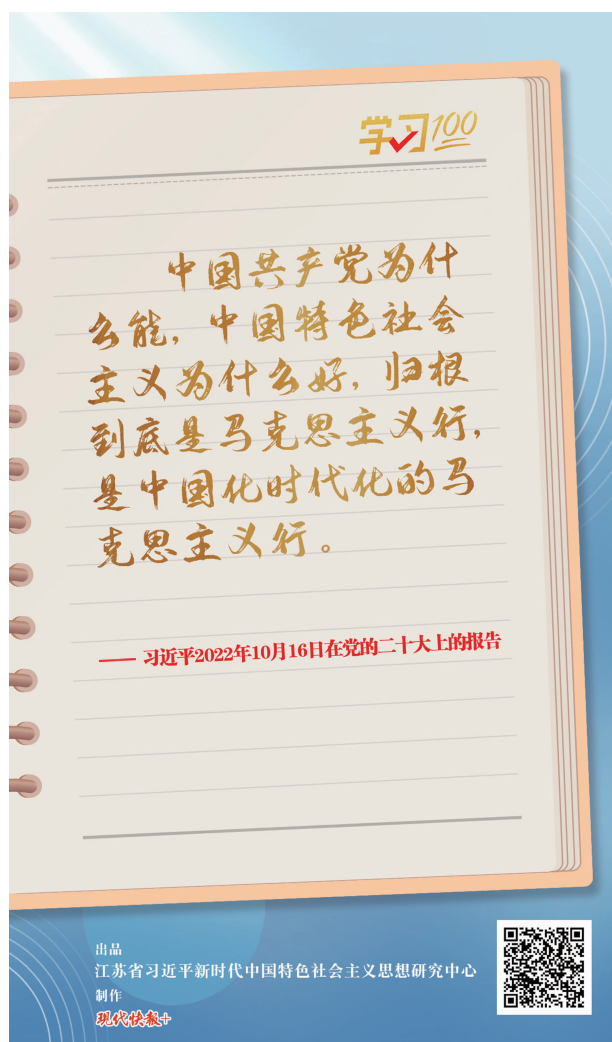 学习100
中国共产党为什
么能，中国特色社会
主义为什么好，归根
到底是马克思主义行，
是中国化时代化的马
克思主义行。
—— 习近平2022年10月16日在党的二十大上的报告
出品
江苏省习近平新时代中国特色社会主义思想研究中心
制作
现代快报+